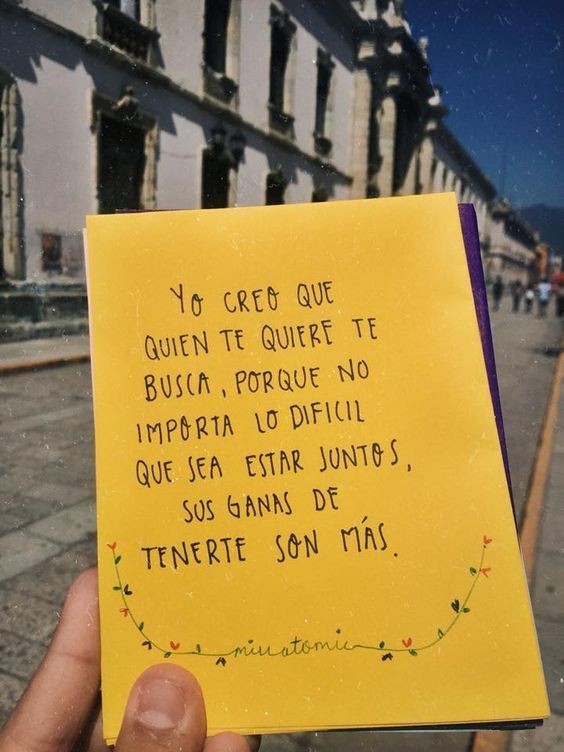 YO CREO QUE
QUIEN TE QUIERE TE
BUSCA, PORQUE NO
IMPORTA LO DIFICIL
QUE SEA ESTAR JUNTOS,
SUS GANAS DE
TENERTE SON MÁS.
missatomic